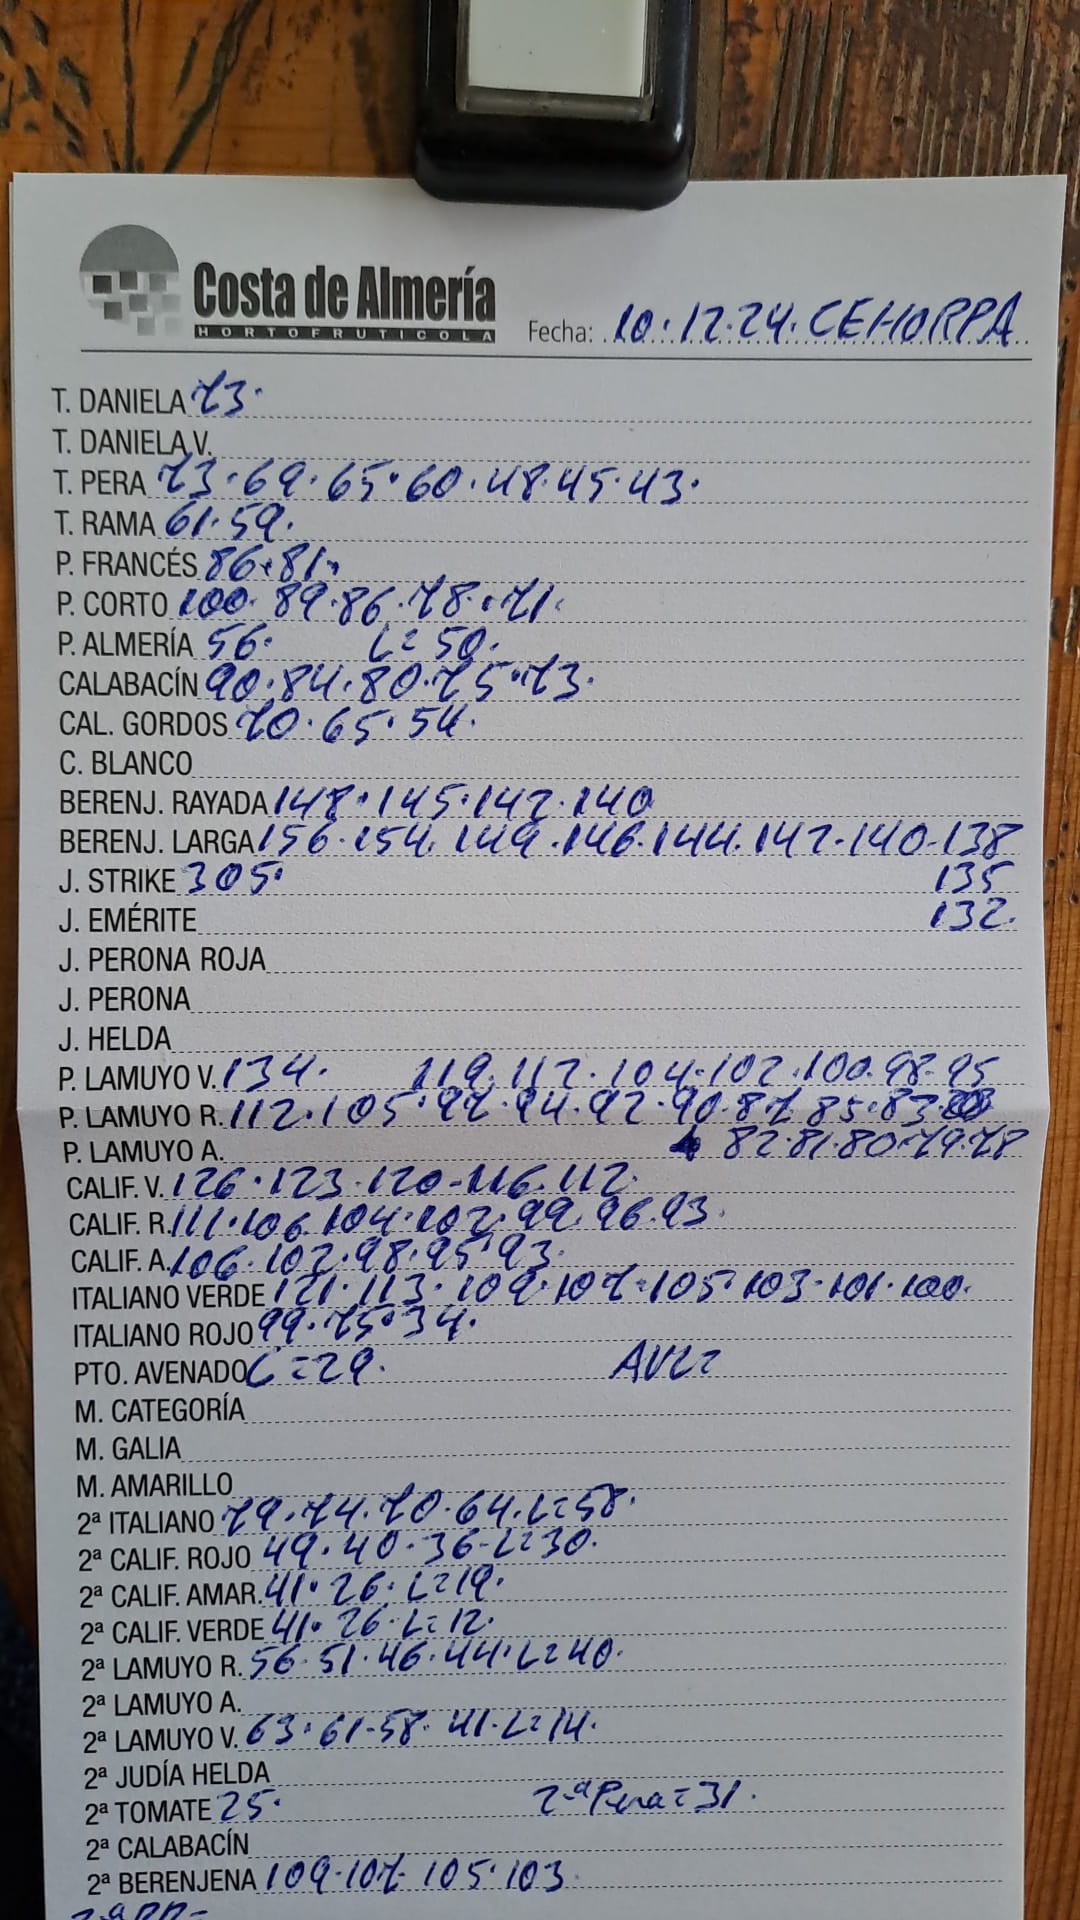 Costa de Almería
HORTOFRUTICOLA
Fecha: 10.12.24. CEHORPA
T. DANIELA 73.
T. DANIELA V.
T. PERA 73.69.65.60.48.45.43.
T. RAMA 61.59.
P. FRANCÉS 86.81.
P. CORTO 100.89.86.78.71.
P. ALMERÍA 56. L=50.
CALABACÍN 90.84.80.75.73.
CAL. GORDOS 70.65.54.
C. BLANCO
BERENJ. RAYADA 148.145.142.140
BERENJ. LARGA 156.154.149.146.144.142.140.138
J. STRIKE 305. 135
J. EMÉRITE 132.
J. PERONA ROJA
J. PERONA
J. HELDA
P. LAMUYO V. 134. 119.112.104.102.100.98.95
P. LAMUYO R. 112.105.97.94.92.90.87.85.83
P. LAMUYO A. 82.81.80.79.78
CALIF. V. 126.123.120-116.112.
CALIF. R. 111.106.104.102.99.96.93.
CALIF. A. 106.102.98.95.93.
ITALIANO VERDE 121.113.109.107.105.103.101.100.
ITALIANO ROJO 99.75.34.
PTO. AVENADO C=29. AVL=
M. CATEGORÍA
M. GALIA
M. AMARILLO
2ª ITALIANO 79.74.70.64.L=58.
2ª CALIF. ROJO 49.40.36-L=30.
2ª CALIF. AMAR. 41.26.L=19.
2ª CALIF. VERDE 41.26.L=12.
2ª LAMUYO R. 56.51.46.44.L=40.
2ª LAMUYO A.
2ª LAMUYO V. 63.61-58.41.L=14.
2ª JUDÍA HELDA
2ª TOMATE 25. 2ª Pera=31.
2ª CALABACÍN
2ª BERENJENA 109.107.105.103